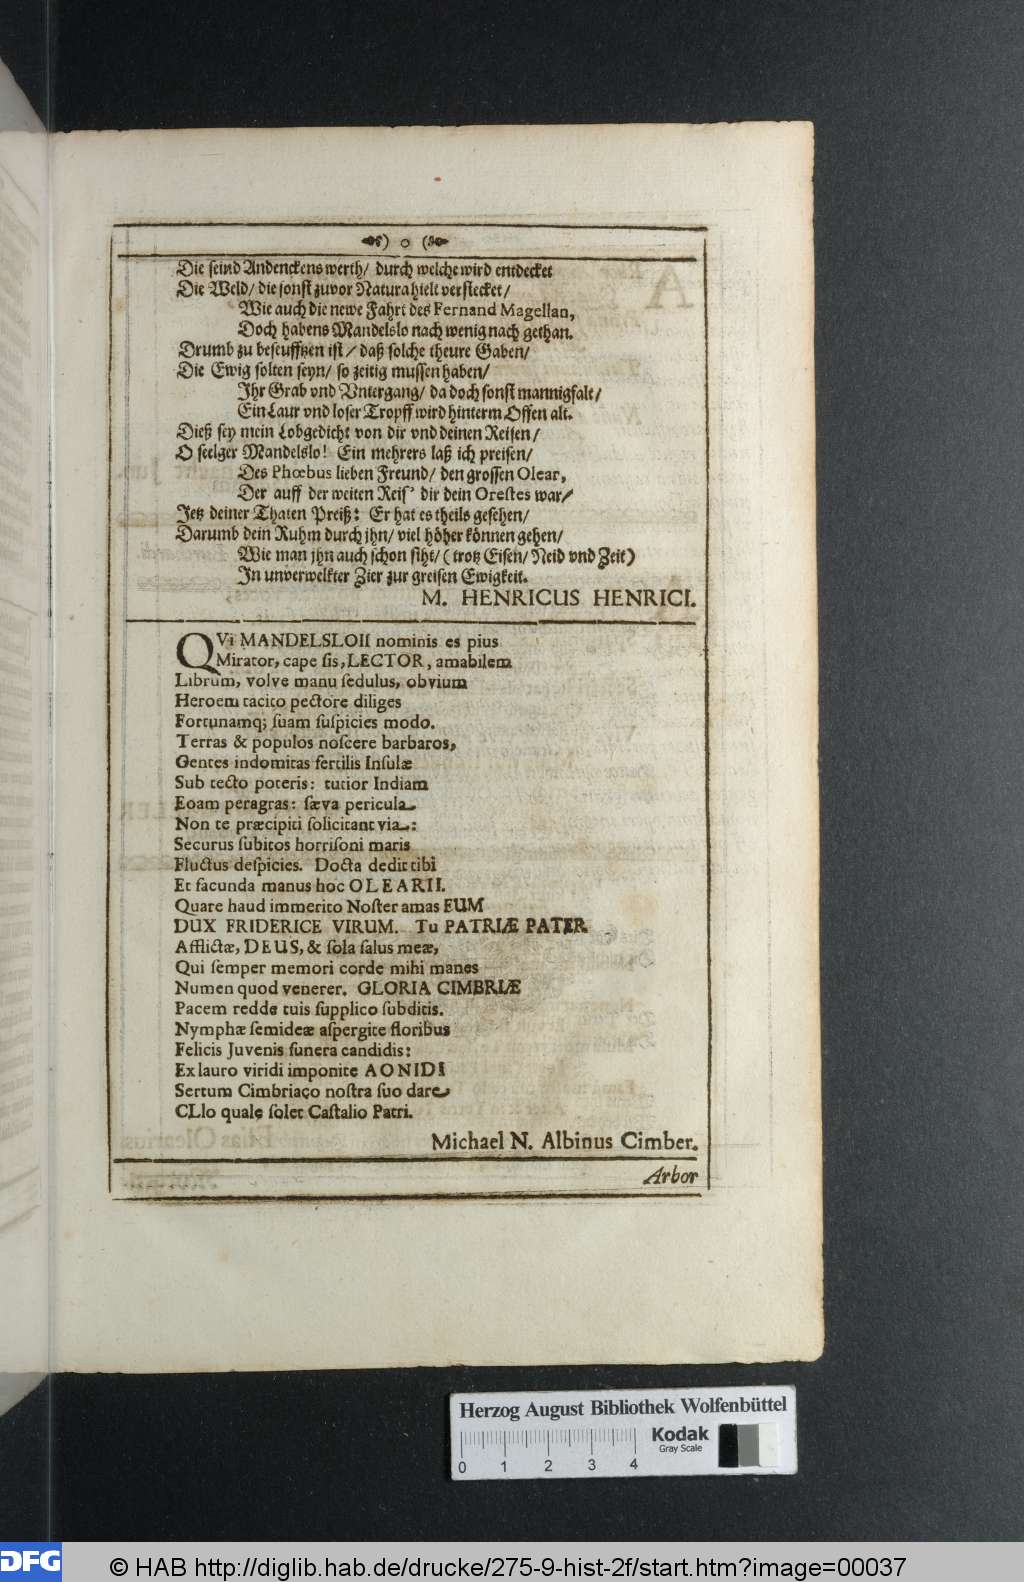 ) o (
Die seind Andenckens werth/ durch welche wird entdecket
Die Weld/ die sonst zuvor Natura hielt verstecket/
Wie auch die newe Fahrt des Fernand Magellan,
Doch habens Mandelslo nach wenig nach gethan.
Drumb zu beseufftzen ist/ daß solche theure Gaben/
Die Ewig solten seyn/ so zeitig mussen haben/
Ihr Grab vnd Vntergang/ da doch sonst mannigfalt/
Ein Laur vnd loser Tropff wird hinterm Offen alt.
Dieß sey mein Lobgedicht von dir vnd deinen Reisen/
O seelger Mandelslo! Ein mehrers laß ich preisen/
Des Phœbus lieben Freund/ den grossen Olear,
Der auff der weiten Reis' dir dein Orestes war/
Jetz deiner Thaten Preiß: Er hat es theils gesehen/
Darumb dein Ruhm durch jhn/ viel höher können gehen/
Wie man jhn auch schon siht/ (trotz Eisen/ Neid vnd Zeit)
In unverwelkter Zier zur greisen Ewigkeit.
M. HENRICUS HENRICI.
QVi MANDELSLOII nominis es pius
Mirator, cape sis, LECTOR, amabilem
Librum, volve manu sedulus, obvium
Heroem tacito pectore diliges
Fortunamq; suam suspicies modo.
Terras & populos noscere barbaros,
Gentes indomitas fertilis Insulæ
Sub tecto poteris: tutior Indiam
Eoam peragras: sæva pericula
Non te præcipiti solicitant via:
Securus subitos horrisoni maris
Fluctus despicies. Docta dedit tibi
Et facunda manus hoc OLEARII.
Quare haud immerito Noster amas EUM
DUX FRIDERICE VIRUM. Tu PATRIÆ PATER
Afflictæ, DEUS, & sola salus meæ,
Qui semper memori corde mihi manes
Numen quod venerer. GLORIA CIMBRIÆ
Pacem redde tuis supplico subditis.
Nymphæ semideæ aspergite floribus
Felicis Juvenis funera candidis:
Ex lauro viridi imponite AONIDI
Sertum Cimbriaco nostra suo dare
CLIo quale solet Castalio Patri.
Michael N. Albinus Cimber.
Arbor
Herzog August Bibliothek Wolfenbüttel
Kodak
Gray Scale
0 1 2 3 4
DFG
© HAB http://diglib.hab.de/drucke/275-9-hist-2f/start.htm?image=00037